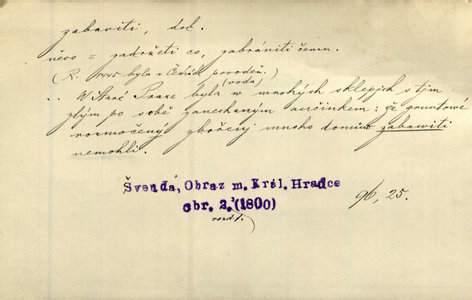 zabaviti, dok.
něco = zadržeti co, zabrániti čemu.
(R. 1445 byla v Čechách povodeň.)
(voda)
.. W Staré Praze byla w mnohých sklepích s tým
zlým po sobě zanechaným aučinkem: že gruntowé
rozmočený zbořený mnoho domů zabawiti
nemohli.
Švenda, Obraz m. Král. Hradce
obr. 2. (1800)
96, 25.